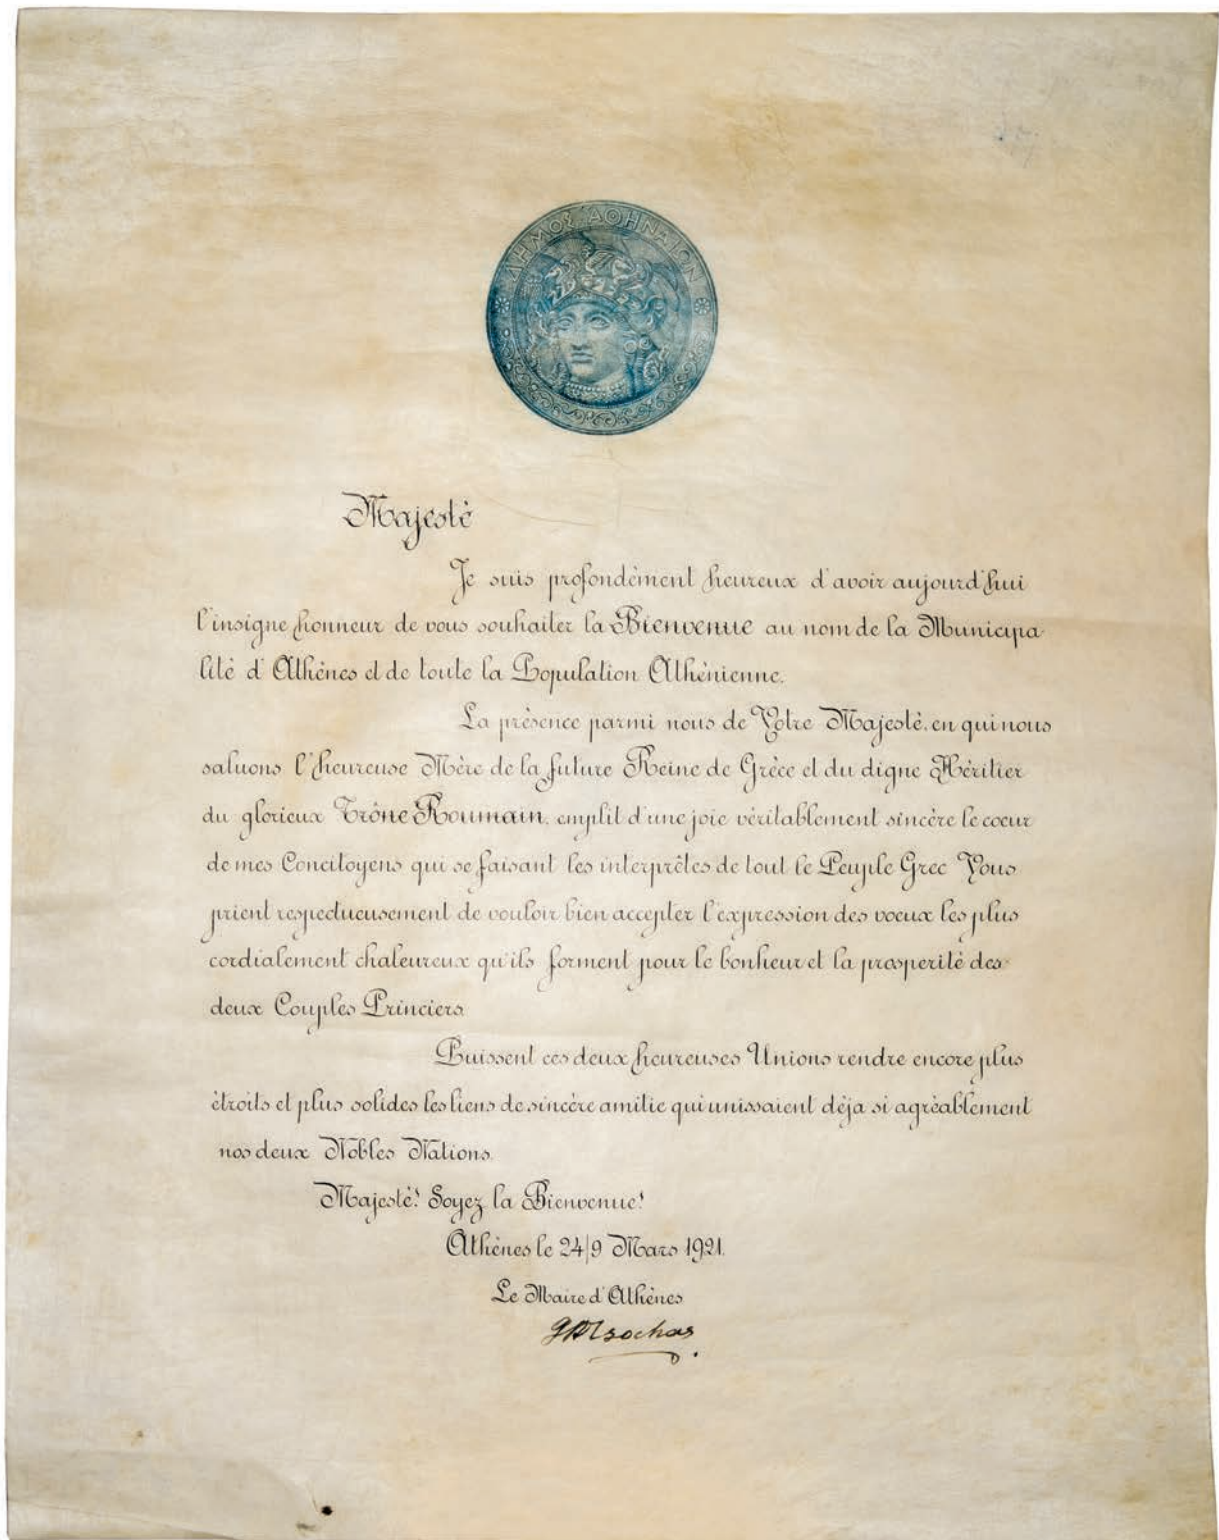 ΔΗΜΟΣ ΑΘΗΝΑΙΩΝ
Majesté
Je suis profondément heureux d'avoir aujourd'hui
l'insigne honneur de vous souhaiter la Bienvenue au nom de la Municipa-
lité d'Athènes et de toute la Population Athénienne.
La présence parmi nous de Votre Majesté, en qui nous
saluons l'heureuse Mère de la future Reine de Grèce et du digne Héritier
du glorieux Trône Roumain, emplit d'une joie véritablement sincère le coeur
de mes Concitoyens qui se faisant les interprêtes de tout le Peuple Grec Vous
prient respectueusement de vouloir bien accepter l'expression des voeux les plus
cordialement chaleureux qu'ils forment pour le bonheur et la prosperité des
deux Couples Princiers.
Puissent ces deux heureuses Unions rendre encore plus
étroits et plus solides les liens de sincère amitie qui unissaient déja si agréablement
nos deux Nobles Nations.
Majesté! Soyez la Bienvenue!
Athènes le 24/9 Mars 1921.
Le Maire d'Athènes